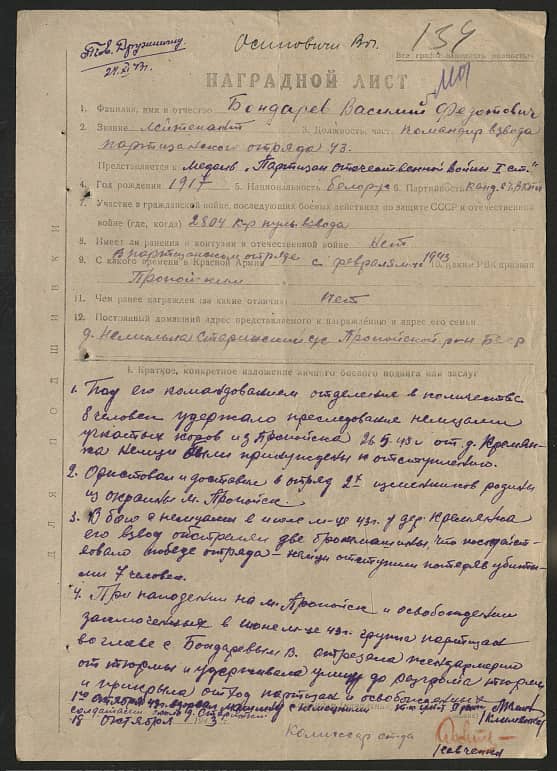 Тов. Дружинину
24.XI.43г.
Осиповичи
134
Все графы заполнять полностью
НАГРАДНОЙ ЛИСТ
1. Фамилия, имя и отчество Бондарев Василий Федотович
2. Звание лейтенант 3. Должность, часть Командир взвода
партизанского отряда 43.
Представляется к медаль „Партизан отечественной войны I ст."
4. Год рождения 1917 5. Национальность белорус 6. Партийность
7. Участие в гражданской войне, последующих боевых действиях по защите СССР и отечественной
войне (где, когда) взвода
8. Имеет ли ранения и контузии в отечественной войне Нет
9. С какого времени в Красной Армии В партизанском отряде с февраля м-це 1943 10. Каким РВК призван
Пропойским
11. Чем ранее награжден (за какие отличия) Нет
12. Постоянный домашний адрес представляемого к награждению и адрес его семьи
д. с/с Пропойский р-он БССР
I. Краткое, конкретное изложение личного боевого подвига или заслуг
1. Под его командованием отделение в количестве
8 человек удержало преследование немцами
коров из Пропойска 26 43г от д. Кремян-
ка немцы были принуждены к отступлению.
2. Аристовал и доставил в отряд 2х изменников родины
из окраины м. Пропойск.
3. В бою с немцами в июле м-це 43г. у дер. Кремянка
его взвод отстранил две бронемашины, что
победе отряда - немцы отступили потеряв убиты-
ми 7 человек.
4. При нападении на м. Пропойск и освобождении
заключенных в июне м-це 43г. группа партизан
во главе с Бондаревым В. отрезала жандармерию
от тюрьмы и удерживала улицу до разгрома тюрьмы
и прикрыла отход партизан и освобожденных
октября 43г. машину с немецкими
солдатами
18 октября 1943
Комиссар
Савченко
ДЛЯ ПОДШИВКИ